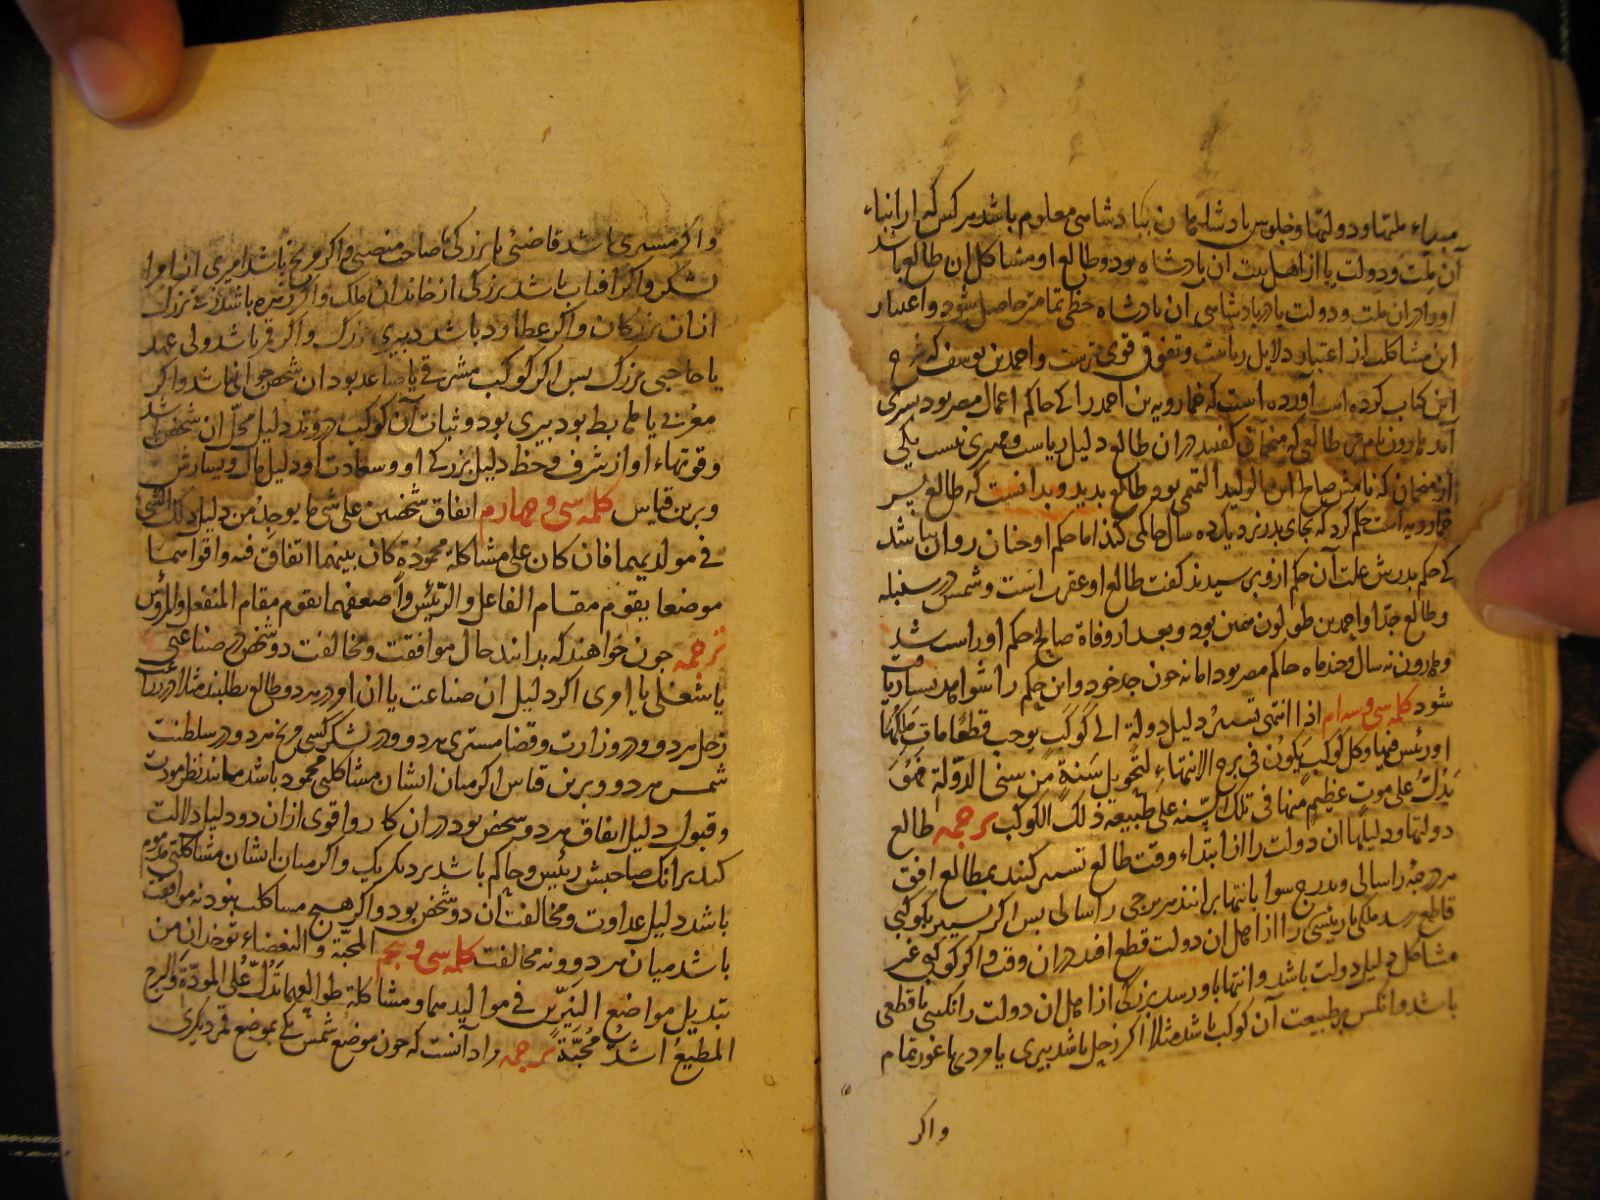 مبداء ملتها و دولتها و جلوس بادشاهان ببادشاهی معلوم باشد هر کس که از ابناء
آن ملت و دولت یا از اهل بیت ان بادشاه بود و طالع او مشاکل ان طالع باشد
او را در ان ملت و دولت یا در بادشاهی ان بادشاه حظی تمامتر حاصل شود و اعتبار
این مشاکلت از اعتبار دلایل ریاست و تفوق قوی ترست و احمد بن یوسف که شرح
این کتاب کرده است آورده است که خمارویه بن احمد را که حاکم اعمال مصر بود بسری
آمد هارون نام بر طالعی که منجمان کفتند در ان طالع دلیل ریاست و مهتری نیست یکی
از منجمان که نامش صالح ابن الولید التمیمی بود و طالع بدید و بدانست که طالع بسر
خمارویه است حکم کرد که بجای بدر نزدیک ده سال حاکمی کند اما حکم او جنان روان نباشد
که حکم بدرش علت آن حکم ازو برسیدند کفت طالع او عقرب است و شمس در سنبله
و طالع جد او احمد بن طولون همین بود و بعد از وفاة صالح حکم او راست شد
و هارون نه سال و جند ماه حاکم مصر بود اما نه جون جد خود و این حکم را شواهد بسیار یافت
شود کلمه سی و سه ام اذا انتهی تسییر دلیل دولة الی کوکب یوجب قطعا مات ملکها
او رئیس فیها و کل کوکب یکون فی برج الانتهاء لتحویل سنة من سنی الدولة فهو
یدل علی موت عظیم منها فی تلک السنه علی طبیعة ذلک الکوکب ترجمه طالع
دولتها و دلیلها ان دولت را از ابتداء وقت طالع تسییر کنند بمطالع افق
هر درجهٔ را سالی و بدرج سوا با نتها برانند هر برجی را سالی بس اکر تسییر بکوکبی
قاطع رسد ملکی یا رئیسی را از اهل ان دولت قطع افتد در ان وقت و اکر کوکبی غیر
مشاکل دلیل دولت باشد و انتها باو رسد بزرکی از اهل ان دولت را نکبتی یا قطعی
باشد و انکس بر طبیعت آن کوکب باشد مثلا اکر زحل باشد بیری یا مردی با غور تمام
واکر
واکر مشتری باشد قاضئی یا بزرکی یا صاحب منصبی و اکر مریخ باشد امیری از امرا
لشکر و اکر افتاب باشد بزرکی از خاندان ملک و اکر زهره باشد زنی بزرک
از ان بزرکان و اکر عطارد باشد دبیری بزرک و اکر قمر باشد ولی عهد
یا حاجبی بزرک بس اکر کوکب مشرقی یا صاعد بود ان شخص جوان باشد و اکر
مغربی یا هابط بود بیری بود و ثبات آن کوکب در وتد دلیل محل ان شخص باشد
و قوتهاء او از شرف و حظ دلیل بزرکی او و سعادت او دلیل مال و یسارش
و برین قیاس کلمه سی و جهارم اتفاق شخصین علی شی ما یوجد من دلیل ذلک الشی
فی مولدیهما فان کان علی مشاکلة محمودة کان بینهما اتفاق فیه و اقواهما
موضعا یقوم مقام الفاعل والرئیس و اضعفهما یقوم مقام المنفعل والمرؤس
ترجمه جون خواهند که بدانند حال موافقت و مخالفت دو شخص در صناعتی
یا شغلی یا امری اکر دلیل ان صناعت یا ان امر در هر دو طالع بطلبند مثلا در ریاست
زحل هر دو و در وزارت و قضا مشتری هر دو و در لشکر کشی مریخ هر دو و در سلطنت
شمس هر دو و برین قیاس اکر میان ایشان مشاکلتی محمود باشد همانند نظر مودت
و قبول دلیل اتفاق هر دو شخص بود در ان کار و اقوی از ان دو دلیل دلالت
کند بر انک صاحبش رئیس و حاکم باشد بر دیکر یک و اکر میان ایشان مشاکلتی مذموم
باشد دلیل عداوت و مخالفت ان دو شخص بود و اکر هیج مشاکلت نبود نه موافقت
باشد میان هر دو و نه مخالفت کلمه سی و بنجم المحبة و البغضاء توخذان من
تبدیل مواضع النیرین فی موالیدهما و مشاکلة طوالعهما تدل علی المودة و البرج
المطیع اشد محبة ترجمه مراد آنست که جون موضع شمس یکی بموضع قمر دیکری